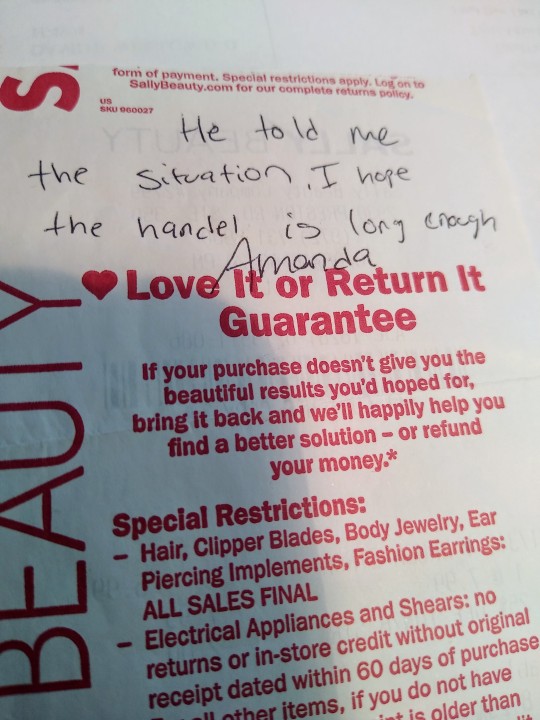 S
form of payment. Special restrictions apply. Log on to
SallyBeauty.com for our complete returns policy.
US
SKU 960027
He told me
the situation, I hope
the handel is long enough
Amanda
Love It or Return It
Guarantee
If your purchase doesn't give you the
beautiful results you'd hoped for,
bring it back and we'll happily help you
find a better solution – or refund
your money.*
BEAUTY
Special Restrictions:
– Hair, Clipper Blades, Body Jewelry, Ear
Piercing Implements, Fashion Earrings:
ALL SALES FINAL
– Electrical Appliances and Shears: no
returns or in-store credit without original
receipt dated within 60 days of purchase
other items, if you do not have
is older than